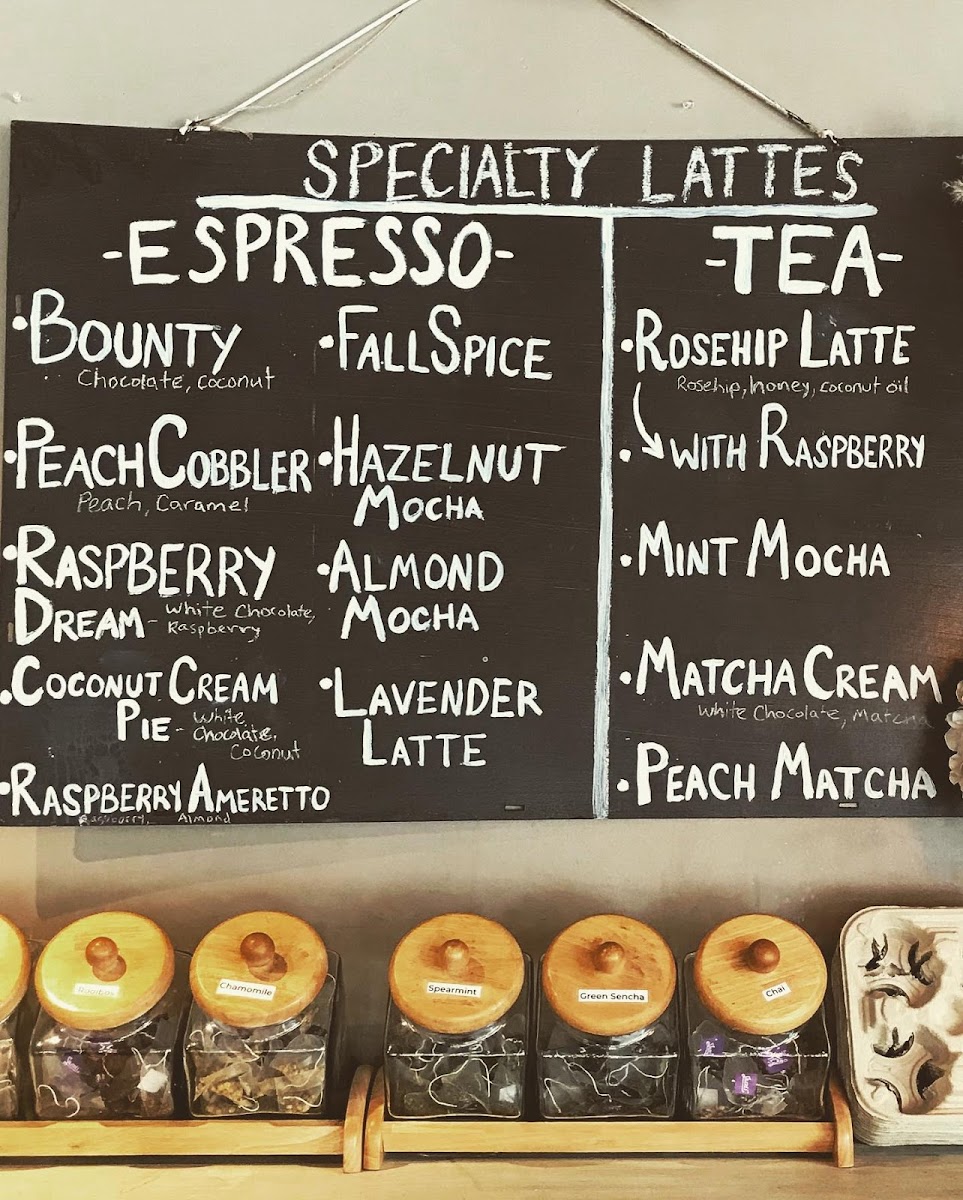 SPECIALTY LATTES
-ESPRESSO-
•BOUNTY
Chocolate, coconut
•PEACH COBBLER
Peach, Caramel
•RASPBERRY
DREAM- White Chocolate,
Raspberry
•COCONUT CREAM
PIE- White
Chocolate,
Coconut
•RASPBERRY AMERETTO
Raspberry, Almond
•FALL SPICE
•HAZELNUT
MOCHA
•ALMOND
MOCHA
•LAVENDER
LATTE
-TEA-
•ROSEHIP LATTE
Rosehip, honey, coconut oil
•WITH RASPBERRY
•MINT MOCHA
•MATCHA CREAM
White Chocolate, Matcha
•PEACH MATCHA
Rooibos
Chamomile
Spearmint
Green Sencha
Chai